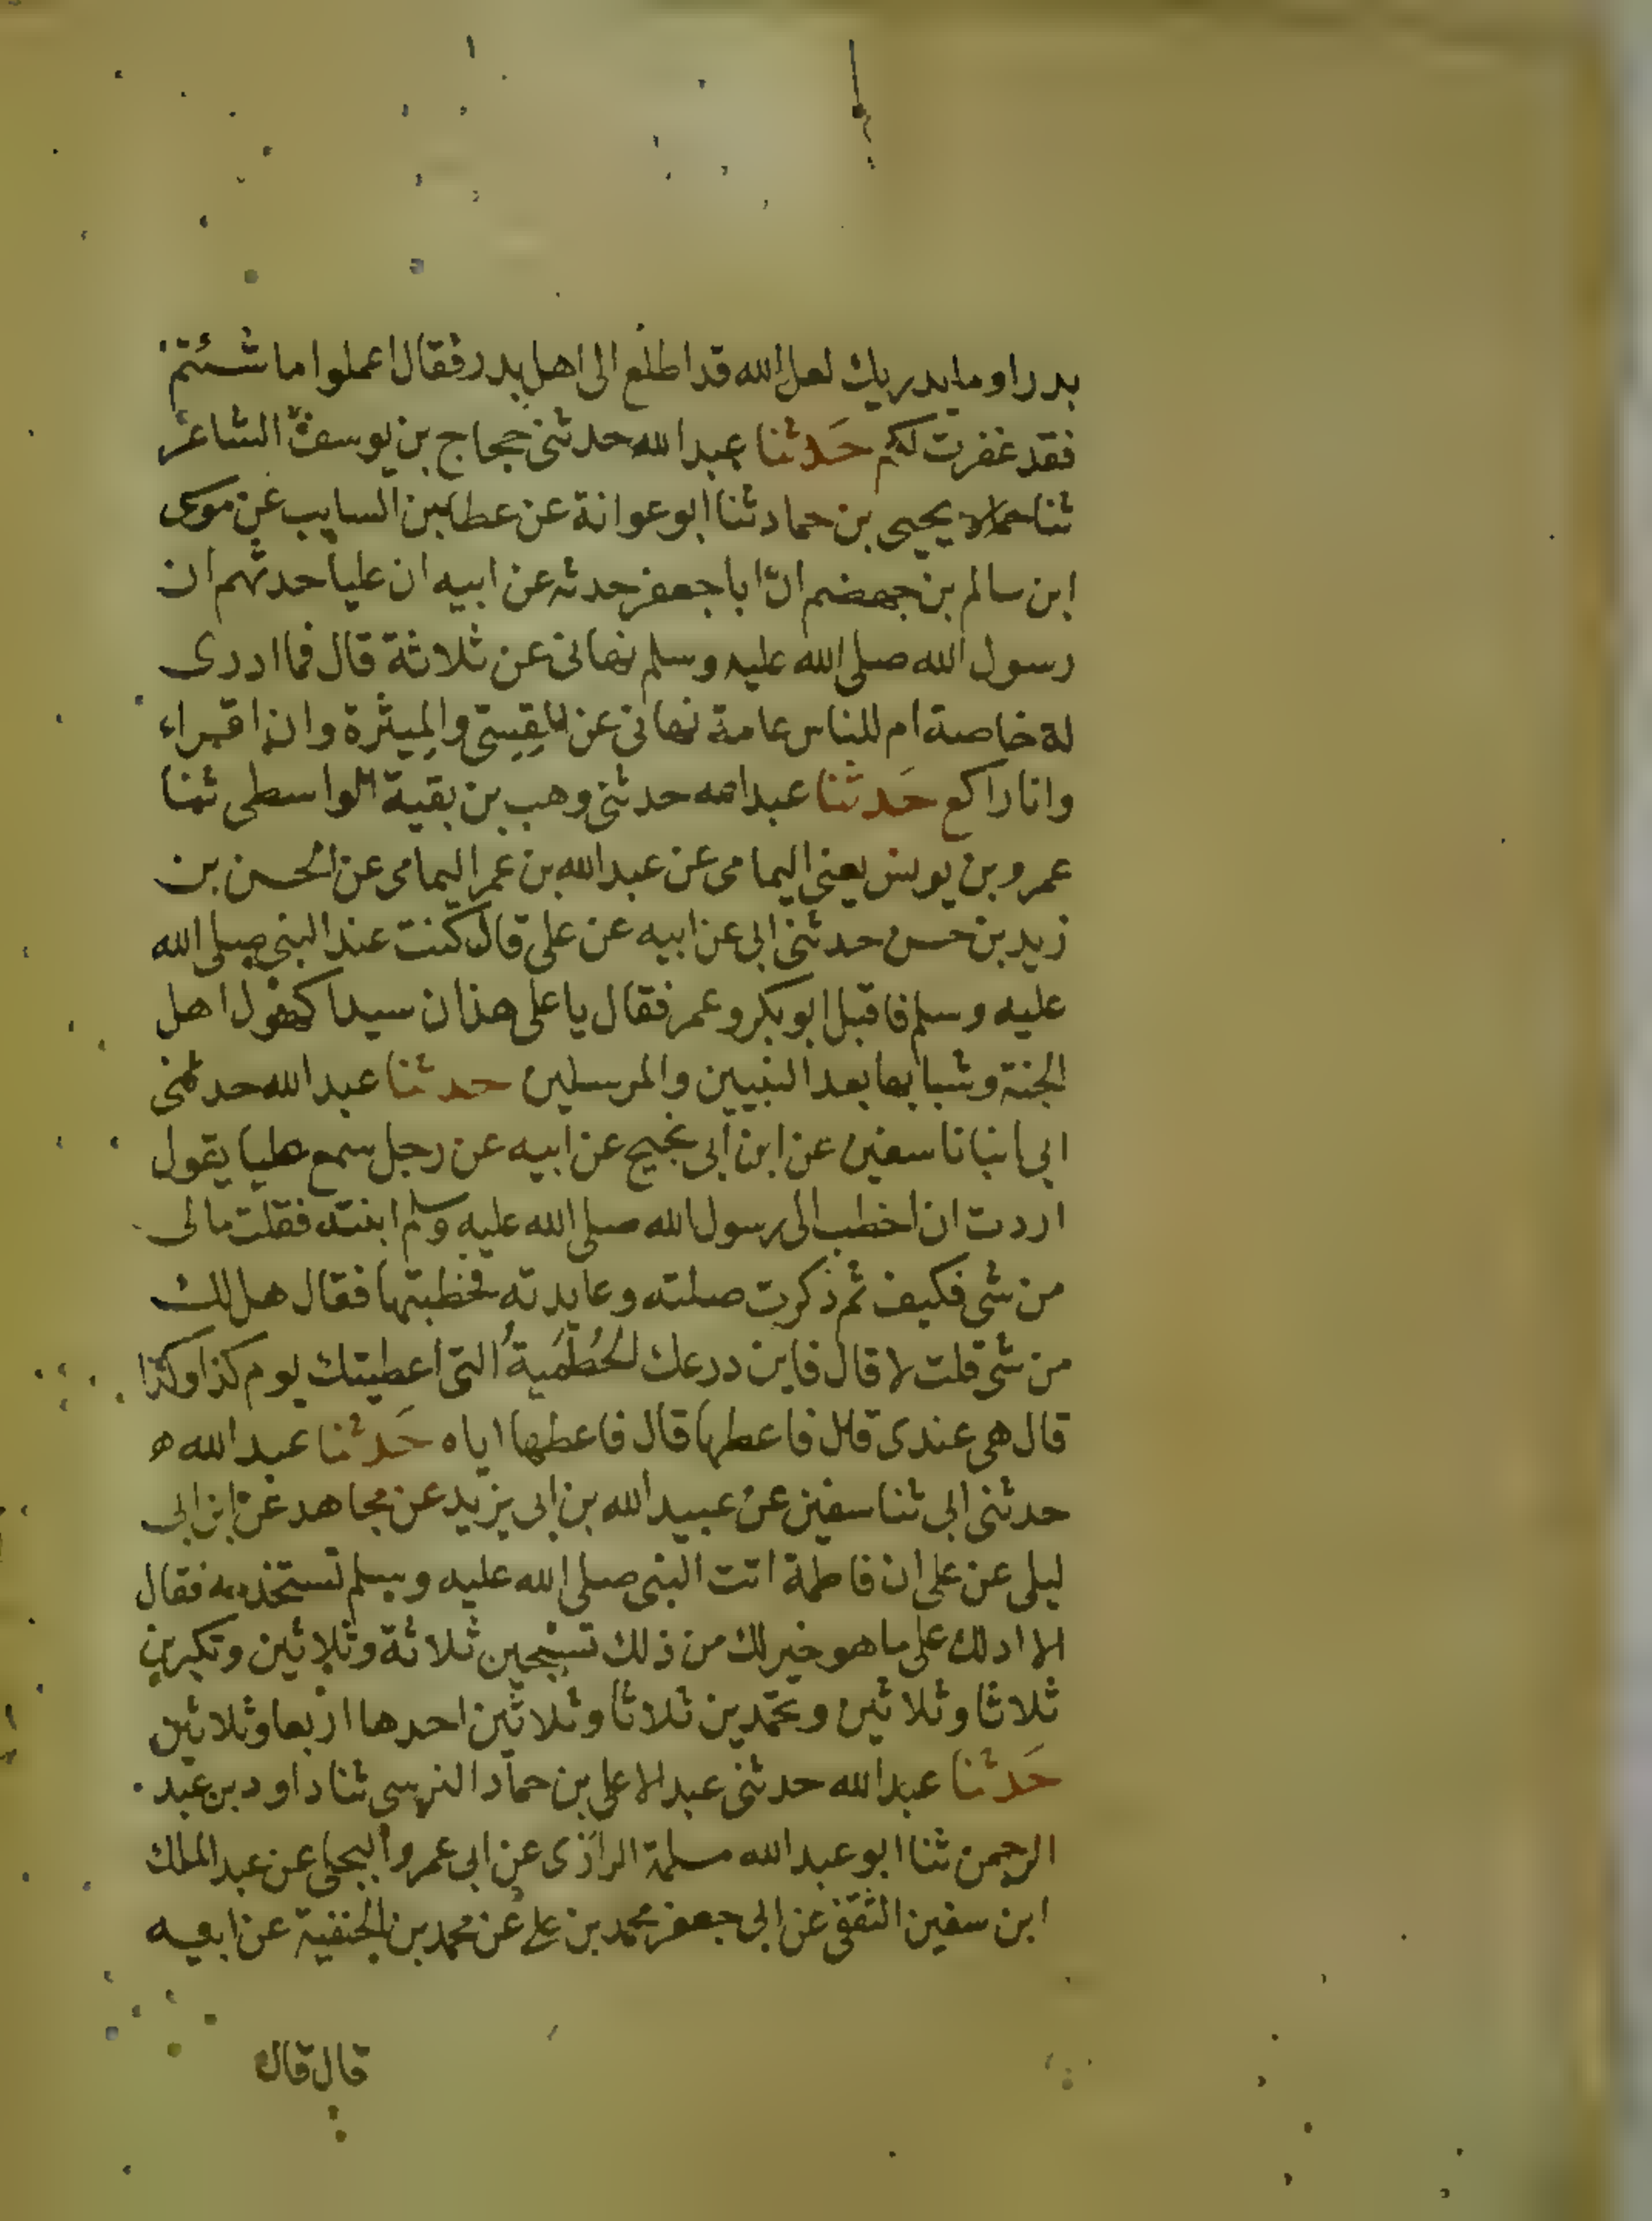 بدرا وما يدريك لعل الله قد اطلع الى اهل بدر فقال اعملوا ما شئتم
فقد غفرت لكم حَدثنا عبد الله حدثنى حجاج بن يوسف الشاعر
ثنا يحيى بن حماد ثنا ابو عوانة عن عطا بن السايب عن موسى
ابن سالم بن جهضم انّ ابا جعفر حدثه عن ابيه ان عليا حدثهم ان
رسول الله صلى الله عليه وسلم نهانى عن ثلاثة قال فما ادرى
له خاصة ام للناس عامة نهانى عن القِسِىّ والمِيثرة وان اقراء
وانا راكع حَدثنا عبد الله حدثنى وهب بن بقية الواسطى ثنا
عمرو بن يونس يعنى اليمامى عن عبد الله بن عمر اليمامى عن الحسن بن
زيد بن حسن حدثنى ابى عن ابيه عن على قال كنت عند النبى صلى الله
عليه وسلم فاقبل ابو بكر وعمر فقال يا على هذان سيدا كهول اهل
الجنة وشبابها بعد النبيين والمرسلين حدثنا عبد الله حدثنى
ابى انبانا سفين عن ابن ابى نجيح عن ابيه عن رجل سمع عليا يقول
اردت ان اخطب الى رسول الله صلى الله عليه وسلم ابنته فقلت مالى
من شى فكيف ثم ذكرت صلته وعايدته فخطبتها فقال هل لك
من شى قلت لا قال فاين درعك الحُطَمِيةُ التى اعطيتك يوم كذا وكذا
قال هى عندى قال فاعطها قال فاعطها اياه حَدثنا عبد الله ه
حدثنى ابى ثنا سفين عن عبيد الله بن ابى يزيد عن مجاهد عن ابن ابى
ليلى عن على ان فاطمة اتت النبى صلى الله عليه وسلم تستخدمه فقال
الا ادلك على ما هو خير لك من ذلك تسبحين ثلاثة وثلاثين وتكبرين
ثلاثا وثلاثين وتحمدين ثلاثا وثلاثين احدها اربعا وثلاثين
حَدثنا عبد الله حدثنى عبد الاعلى بن حماد النرسى ثنا داود بن عبد
الرحمن ثنا ابو عبد الله مسلمة الرازى عن ابى عمرو البجلى عن عبد الملك
ابن سفين الثقفى عن ابى جعفر محمد بن على عن محمد بن الحنفية عن ابيه
قال قال